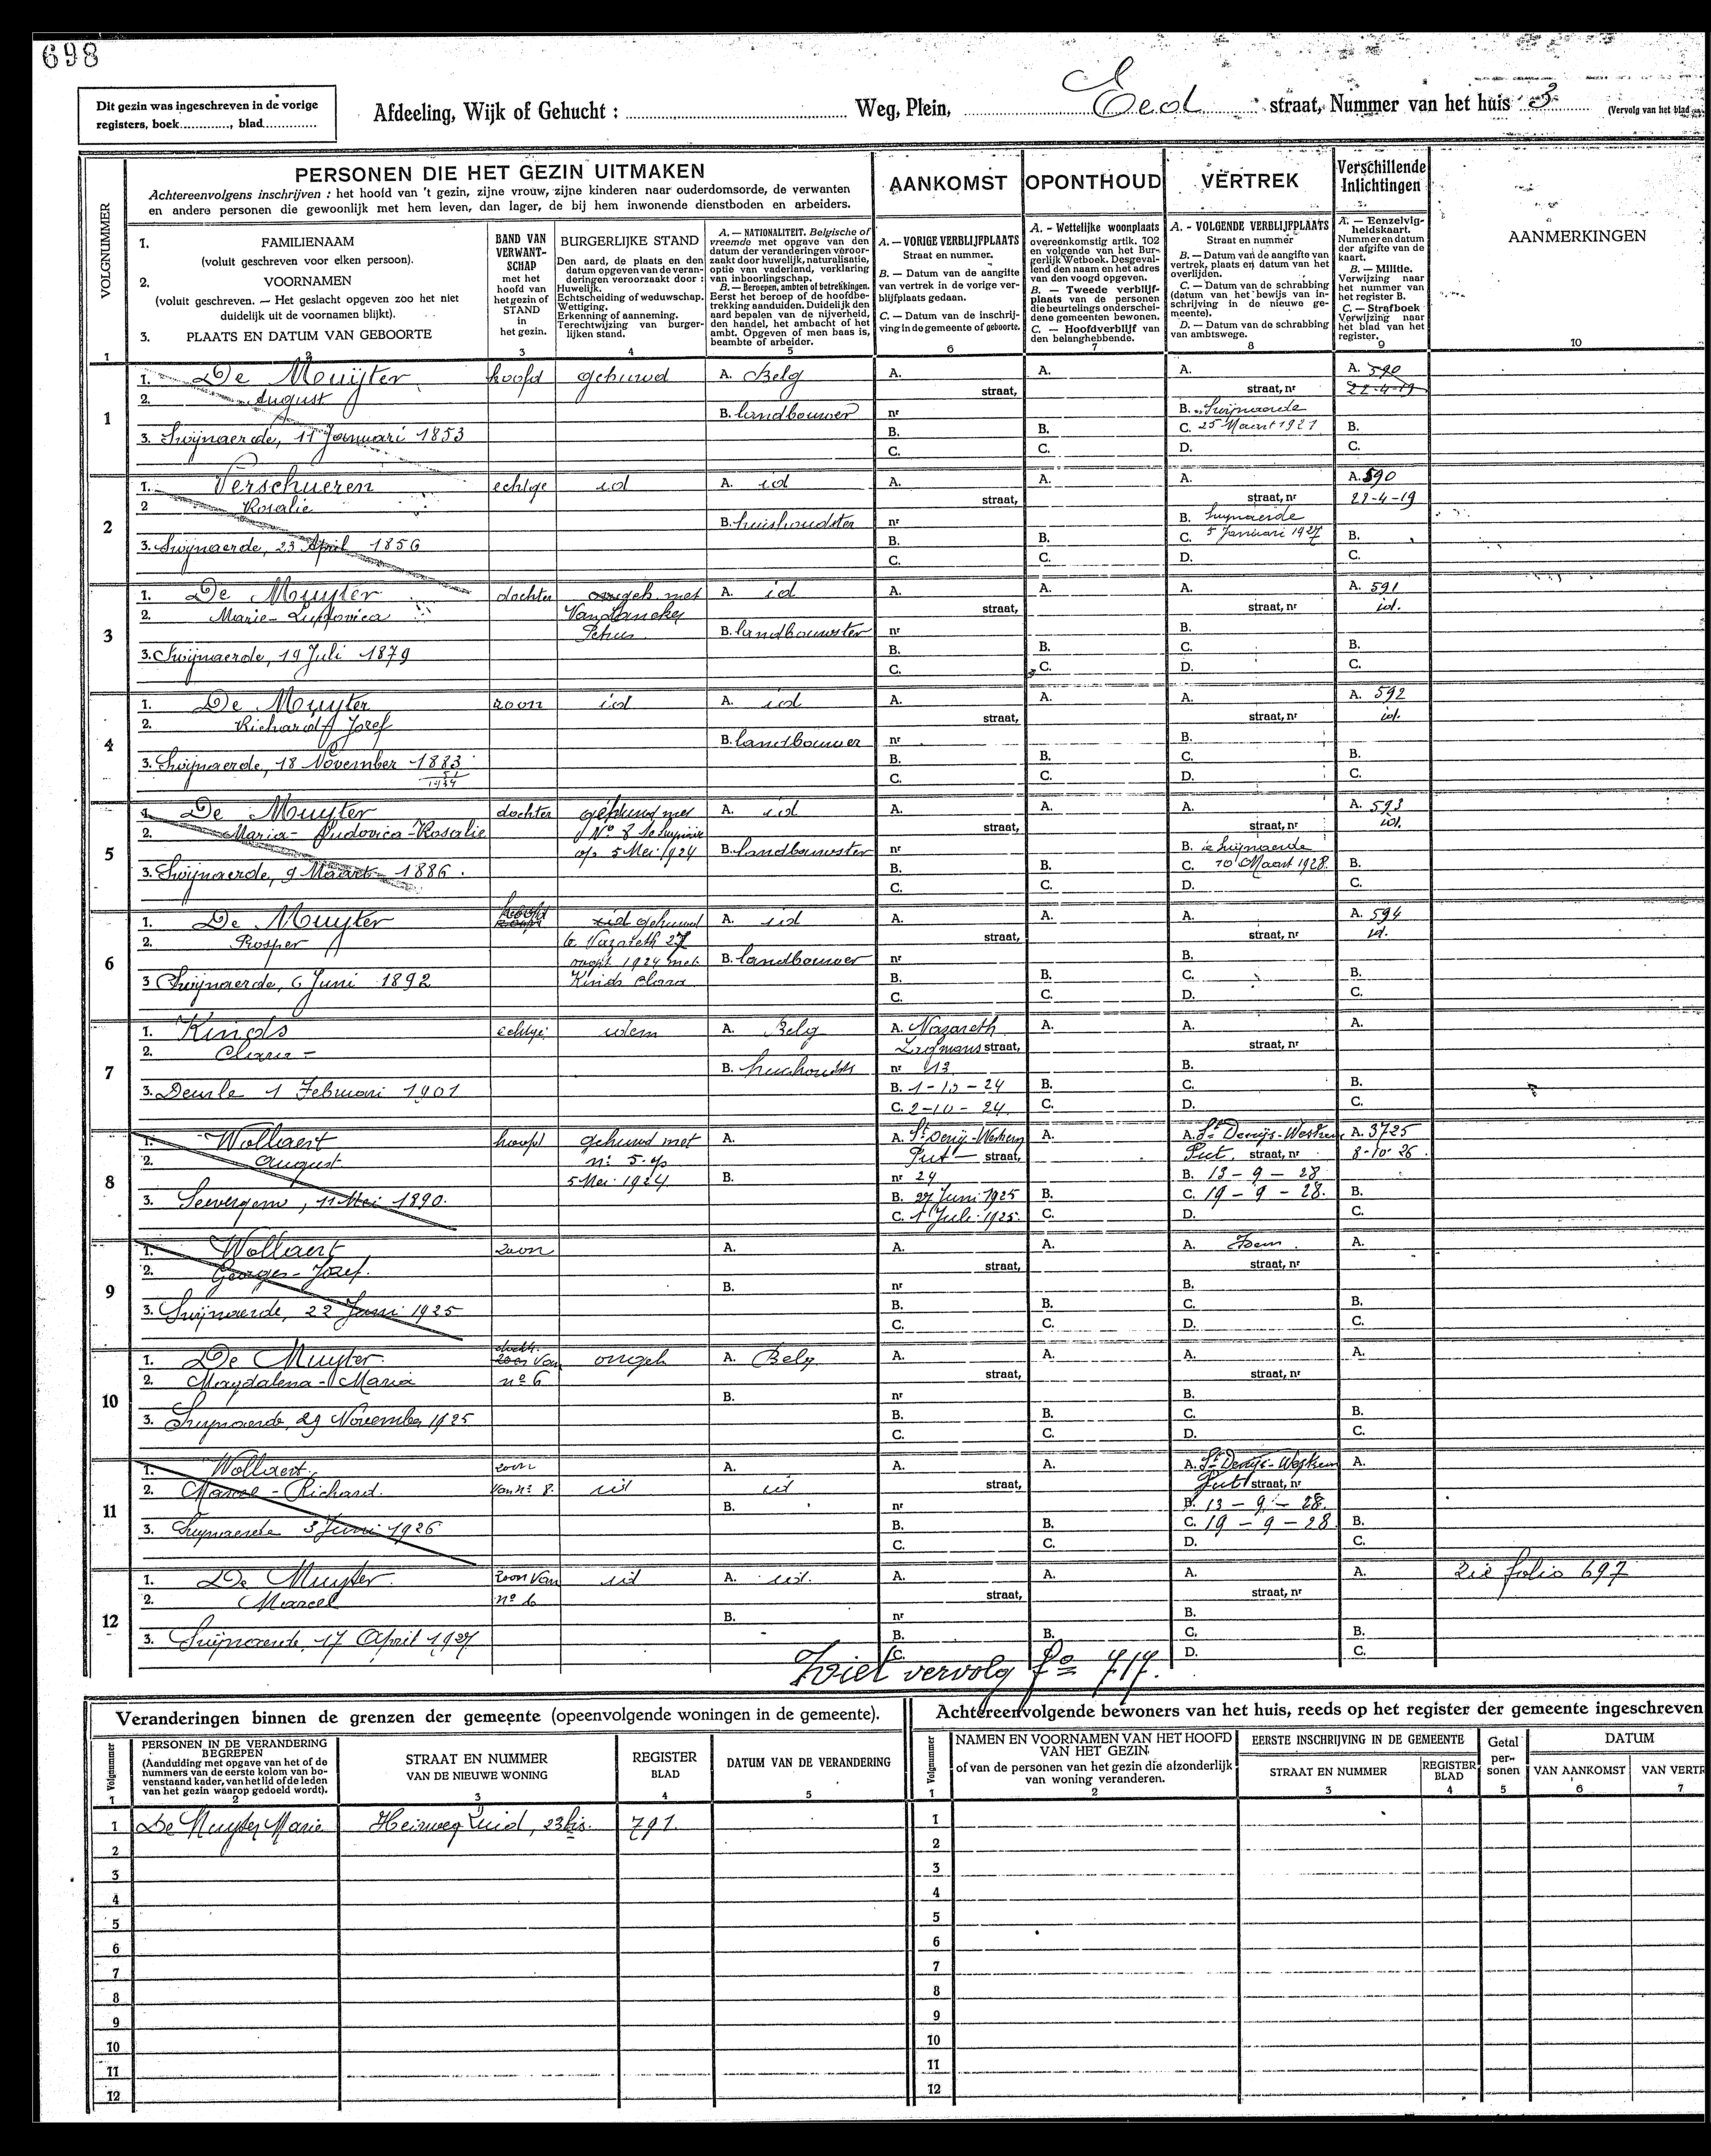 698
Dit gezin was ingeschreven in de vorige
registers, boek............., blad..............
Afdeeling, Wijk of Gehucht : Weg, Plein, Eed straat, Nummer van het huis 3 (Vervolg van het blad
VOLGNUMMER
PERSONEN DIE HET GEZIN UITMAKEN
Achtereenvolgens inschrijven : het hoofd van 't gezin, zijne vrouw, zijne kinderen naar ouderdomsorde, de verwanten
en andere personen die gewoonlijk met hem leven, dan lager, de bij hem inwonende dienstboden en arbeiders.
AANKOMST
OPONTHOUD
VERTREK
Verschillende
Inlichtingen
1. FAMILIENAAM
(voluit geschreven voor elken persoon).
2. VOORNAMEN
(voluit geschreven. — Het geslacht opgeven zoo het niet
duidelijk uit de voornamen blijkt).
3. PLAATS EN DATUM VAN GEBOORTE
BAND VAN
VERWANT-
SCHAP
met het
hoofd van
het gezin of
STAND
in
het gezin.
BURGERLIJKE STAND
Den aard, de plaats en den
datum opgeven van de veran-
deringen veroorzaakt door :
Huwelijk.
Echtscheiding of weduwschap.
Wettiging.
Erkenning of aanneming.
Terechtwijzing van burger-
lijken stand.
A. — NATIONALITEIT. Belgische of
vreemde met opgave van den
datum der veranderingen veroor-
zaakt door huwelijk, naturalisatie,
optie van vaderland, verklaring
van inboorlingschap.
B. — Beroepen, ambten of betrekkingen.
Eerst het beroep of de hoofdbe-
trekking aanduiden. Duidelijk den
aard bepalen van de nijverheid,
den handel, het ambacht of het
ambt. Opgeven of men baas is,
beambte of arbeider.
A. — VORIGE VERBLIJFPLAATS
Straat en nummer.
B. — Datum van de aangifte
van vertrek in de vorige ver-
blijfplaats gedaan.
C. — Datum van de inschrij-
ving in de gemeente of geboorte.
A. - Wettelijke woonplaats
overeenkomstig artik. 102
en volgende van het Bur-
gerlijk Wetboek. Desgeval-
lend den naam en het adres
van den voogd opgeven.
B. — Tweede verblijf-
plaats van de personen
die beurtelings onderschei-
dene gemeenten bewonen.
C. — Hoofdverblijf van
den belanghebbende.
A. - VOLGENDE VERBLIJFPLAATS
Straat en nummer
B. — Datum van de aangifte van
vertrek, plaats en datum van het
overlijden.
C. — Datum van de schrabbing
(datum van het bewijs van in-
schrijving in de nieuwe ge-
meente).
D. — Datum van de schrabbing
van ambtswege.
A. — Eenzelvig-
heidskaart.
Nummer en datum
der afgifte van de
kaart.
B. — Militie.
Verwijzing naar
het nummer van
het register B.
C. — Strafboek
Verwijzing naar
het blad van het
register.
AANMERKINGEN
1 2 3 4 5 6 7 8 9 10
1
1. De Muijter hoofd gehuwd A. Belg A. A. A. A. 590
2. August straat, straat, nr 22-4-19
B. landbouwer nr B. Swijnaerde
3. Swijnaerde, 11 Januari 1853 B. B. C. 25 Maart 1921 B.
C. C. D. C.
2
1. Verschueren echtge id A. id A. A. A. A. 590
2 Rosalie straat, straat, nr 22-4-19
B. huishoudster nr B. Swijnaerde
3. Swijnaerde, 23 April 1856 B. B. C. 5 Januari 1927 B.
C. C. D. C.
3
1. De Muyter dochter ongeh. met A. id A. A. A. A. 591
2. Marie-Ludovica straat, straat, nr id.
Petrus B. landbouwster nr B.
3. Swijnaerde, 19 Juli 1879 B. B. C. B.
C. C. D. C.
4
1. De Muyter zoon id A. id A. A. A. A. 592
2. Richard Jozef straat, straat, nr id.
B. landbouwer nr B.
3. Swijnaerde, 18 November 1883 B. B. C. B.
1934 C. C. D. C.
5
1. De Muyter dochter gehuwd met A. id A. A. A. A. 593
2. Maria-Ludovica-Rosalie No 8 straat, straat, nr id.
op 5 Mei 1924 B. landbouwster nr B. Swijnaerde
3. Swijnaerde, 9 Maart 1886. B. B. C. 10 Maart 1928. B.
C. C. D. C.
6
hoofd
1. De Muyter id gehuwd A. id A. A. A. A. 594
2. Prosper te Nazareth 27 straat, straat, nr id.
1924 met B. landbouwer nr B.
3 Swijnaerde, 6 Juni 1892 Kinds Clara B. B. C. B.
C. C. D. C.
7
1. Kinds echtge idem A. Belg A. Nazareth A. A. A.
2. Clara - straat, straat, nr
B. nr 13 B.
3. Deurle 1 Februari 1901 B. 1-10-24 B. C. B.
C. 2-10-24 C. D. C.
8
1. Wollaert hoofd gehuwd met A. A. St Denijs-Westrem A. A. St Denijs-Westrem A. 3725
2. August no 5. op Put straat, Put. straat, nr 8-10-26
5 Mei 1924 B. nr 24 B. 13-9-28
3. Seevergem, 11 Mei 1890. B. 27 Juni 1925 B. C. 19-9-28. B.
C. 1 Juli 1925. C. D. C.
9
1. Wollaert zoon A. A. A. A. Idem A.
2. Georges-Jozef. straat, straat, nr
B. nr B.
3. Swijnaerde, 22 Juni 1925 B. B. C. B.
C. C. D. C.
10
docht.
1. De Muyter zoon van ongeh A. Belg A. A. A. A.
2. Magdalena-Maria no 6 straat, straat, nr
B. nr B.
3. Swijnaerde, 29 November 1925 B. B. C. B.
C. C. D. C.
11
1. Wollaert zoon A. A. A. A. St Denijs-Westrem A.
2. Marcel-Richard. van no 8. id id straat, Put straat, nr
B. nr B. 13-9-28.
3. Swijnaerde 3 Juni 1926 B. B. C. 19-9-28 B.
C. C. D. C.
12
1. De Muyter. zoon van id A. id. A. A. A. A. zie folio 697
2. Marcel no 6 straat, straat, nr
B. nr B.
3. Swijnaerde, 17 April 1927 B. B. C. B.
C. D. C.
Ziet vervolg fo 717.
Veranderingen binnen de grenzen der gemeente (opeenvolgende woningen in de gemeente).
Volgnummer
PERSONEN IN DE VERANDERING
BEGREPEN
(Aanduiding met opgave van het of de
nummers van de eerste kolom van bo-
venstaand kader, van het lid of de leden
van het gezin waarop gedoeld wordt).
STRAAT EN NUMMER
VAN DE NIEUWE WONING
REGISTER
BLAD
DATUM VAN DE VERANDERING
1 2 3 4 5
1 De Muyter Marie Heirweg Zuid, 23bis. 791.
2
3
4
5
6
7
8
9
10
11
12
Achtereenvolgende bewoners van het huis, reeds op het register der gemeente ingeschreven
Volgnummer
NAMEN EN VOORNAMEN VAN HET HOOFD
VAN HET GEZIN
of van de personen van het gezin die afzonderlijk
van woning veranderen.
EERSTE INSCHRIJVING IN DE GEMEENTE
STRAAT EN NUMMER
REGISTER
BLAD
Getal
per-
sonen
DATUM
VAN AANKOMST
VAN VERTR
1 2 3 4 5 6 7
1
2
3
4
5
6
7
8
9
10
11
12